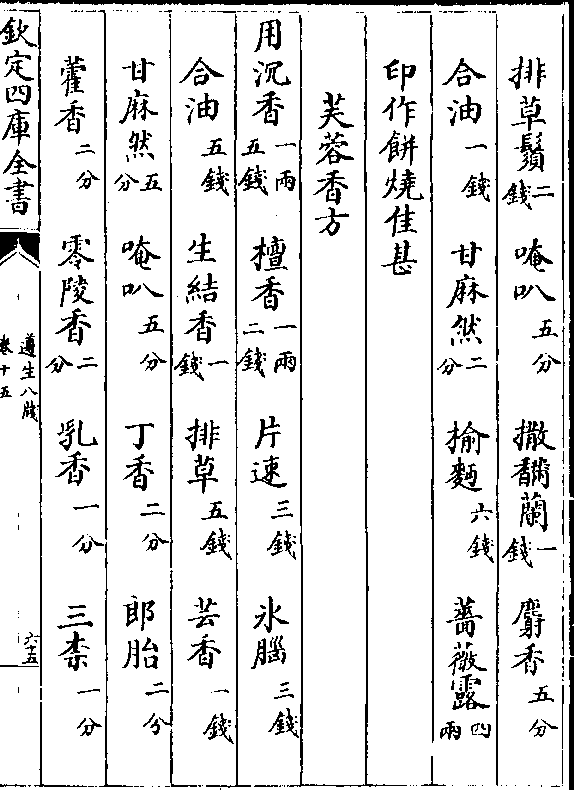 排草鬚二錢 唵叭五分 撒𩡷蘭一錢 麝香五分
合油一錢 甘麻然二分 榆麵六錢 薔薇露四兩
印作餅燒佳甚
芙蓉香方
用沉香一兩五錢 檀香一兩二錢 片速三錢 氷腦三錢
合油五錢 生結香一錢 排草五錢 芸香一錢
甘麻然五分 唵叭五分 丁香二分 郎胎二分
藿香二分 零陵香二分 乳香一分 三柰一分
欽定四庫全書
遵生八牋
卷十五
六十五